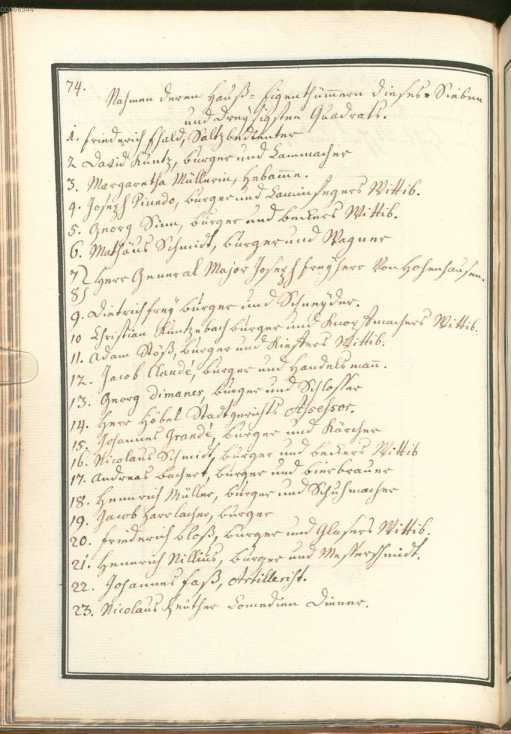 74.
Nahmen deren Hauß-Eigenthümmern dieses Sieben
und dreyßigsten Quadrats.
1. Friederich Shald, Saltzbedienter
2 David Küntz, burger und Cammacher
3. Margaretha Müllerin, Hebame.
4. Joseph Pinedo, burger und Caminfegers Wittib.
5. Georg Sinn, burger und beckers Wittib.
6. Mathäus Schmidt, burger und Wagner
7 Herr General Major Joseph Freyherr von Hohenhausen.
8
9. Dietrich Frey burger und Schneyder.
10 Christian Küntzebach burger und Knopfmachers Wittib.
11. Adam Stöß, burger und Kiefers Wittib.
12. Jacob Claudé, burger und Handelsman.
13. Georg Dimaner, burger und Schlosser
14. Herr Höbel Stadtgerichts Assessor.
15. Johannes Grandé, burger und Kärcher
16. Nicolaus Schmidt, burger und beckers Wittib
17. Andreas bachert, burger und bierbrauer
18. Heinrich Müller, burger und Schuhmacher
19. Jacob Harrlacher, burger
20. Friederich bloß, burger und Glasers Wittib.
21. Heinrich Nillius, burger und Messerschmidt.
22. Johannes Faß, Artillerist.
23. Nicolaus Reuther Comedien Diener.